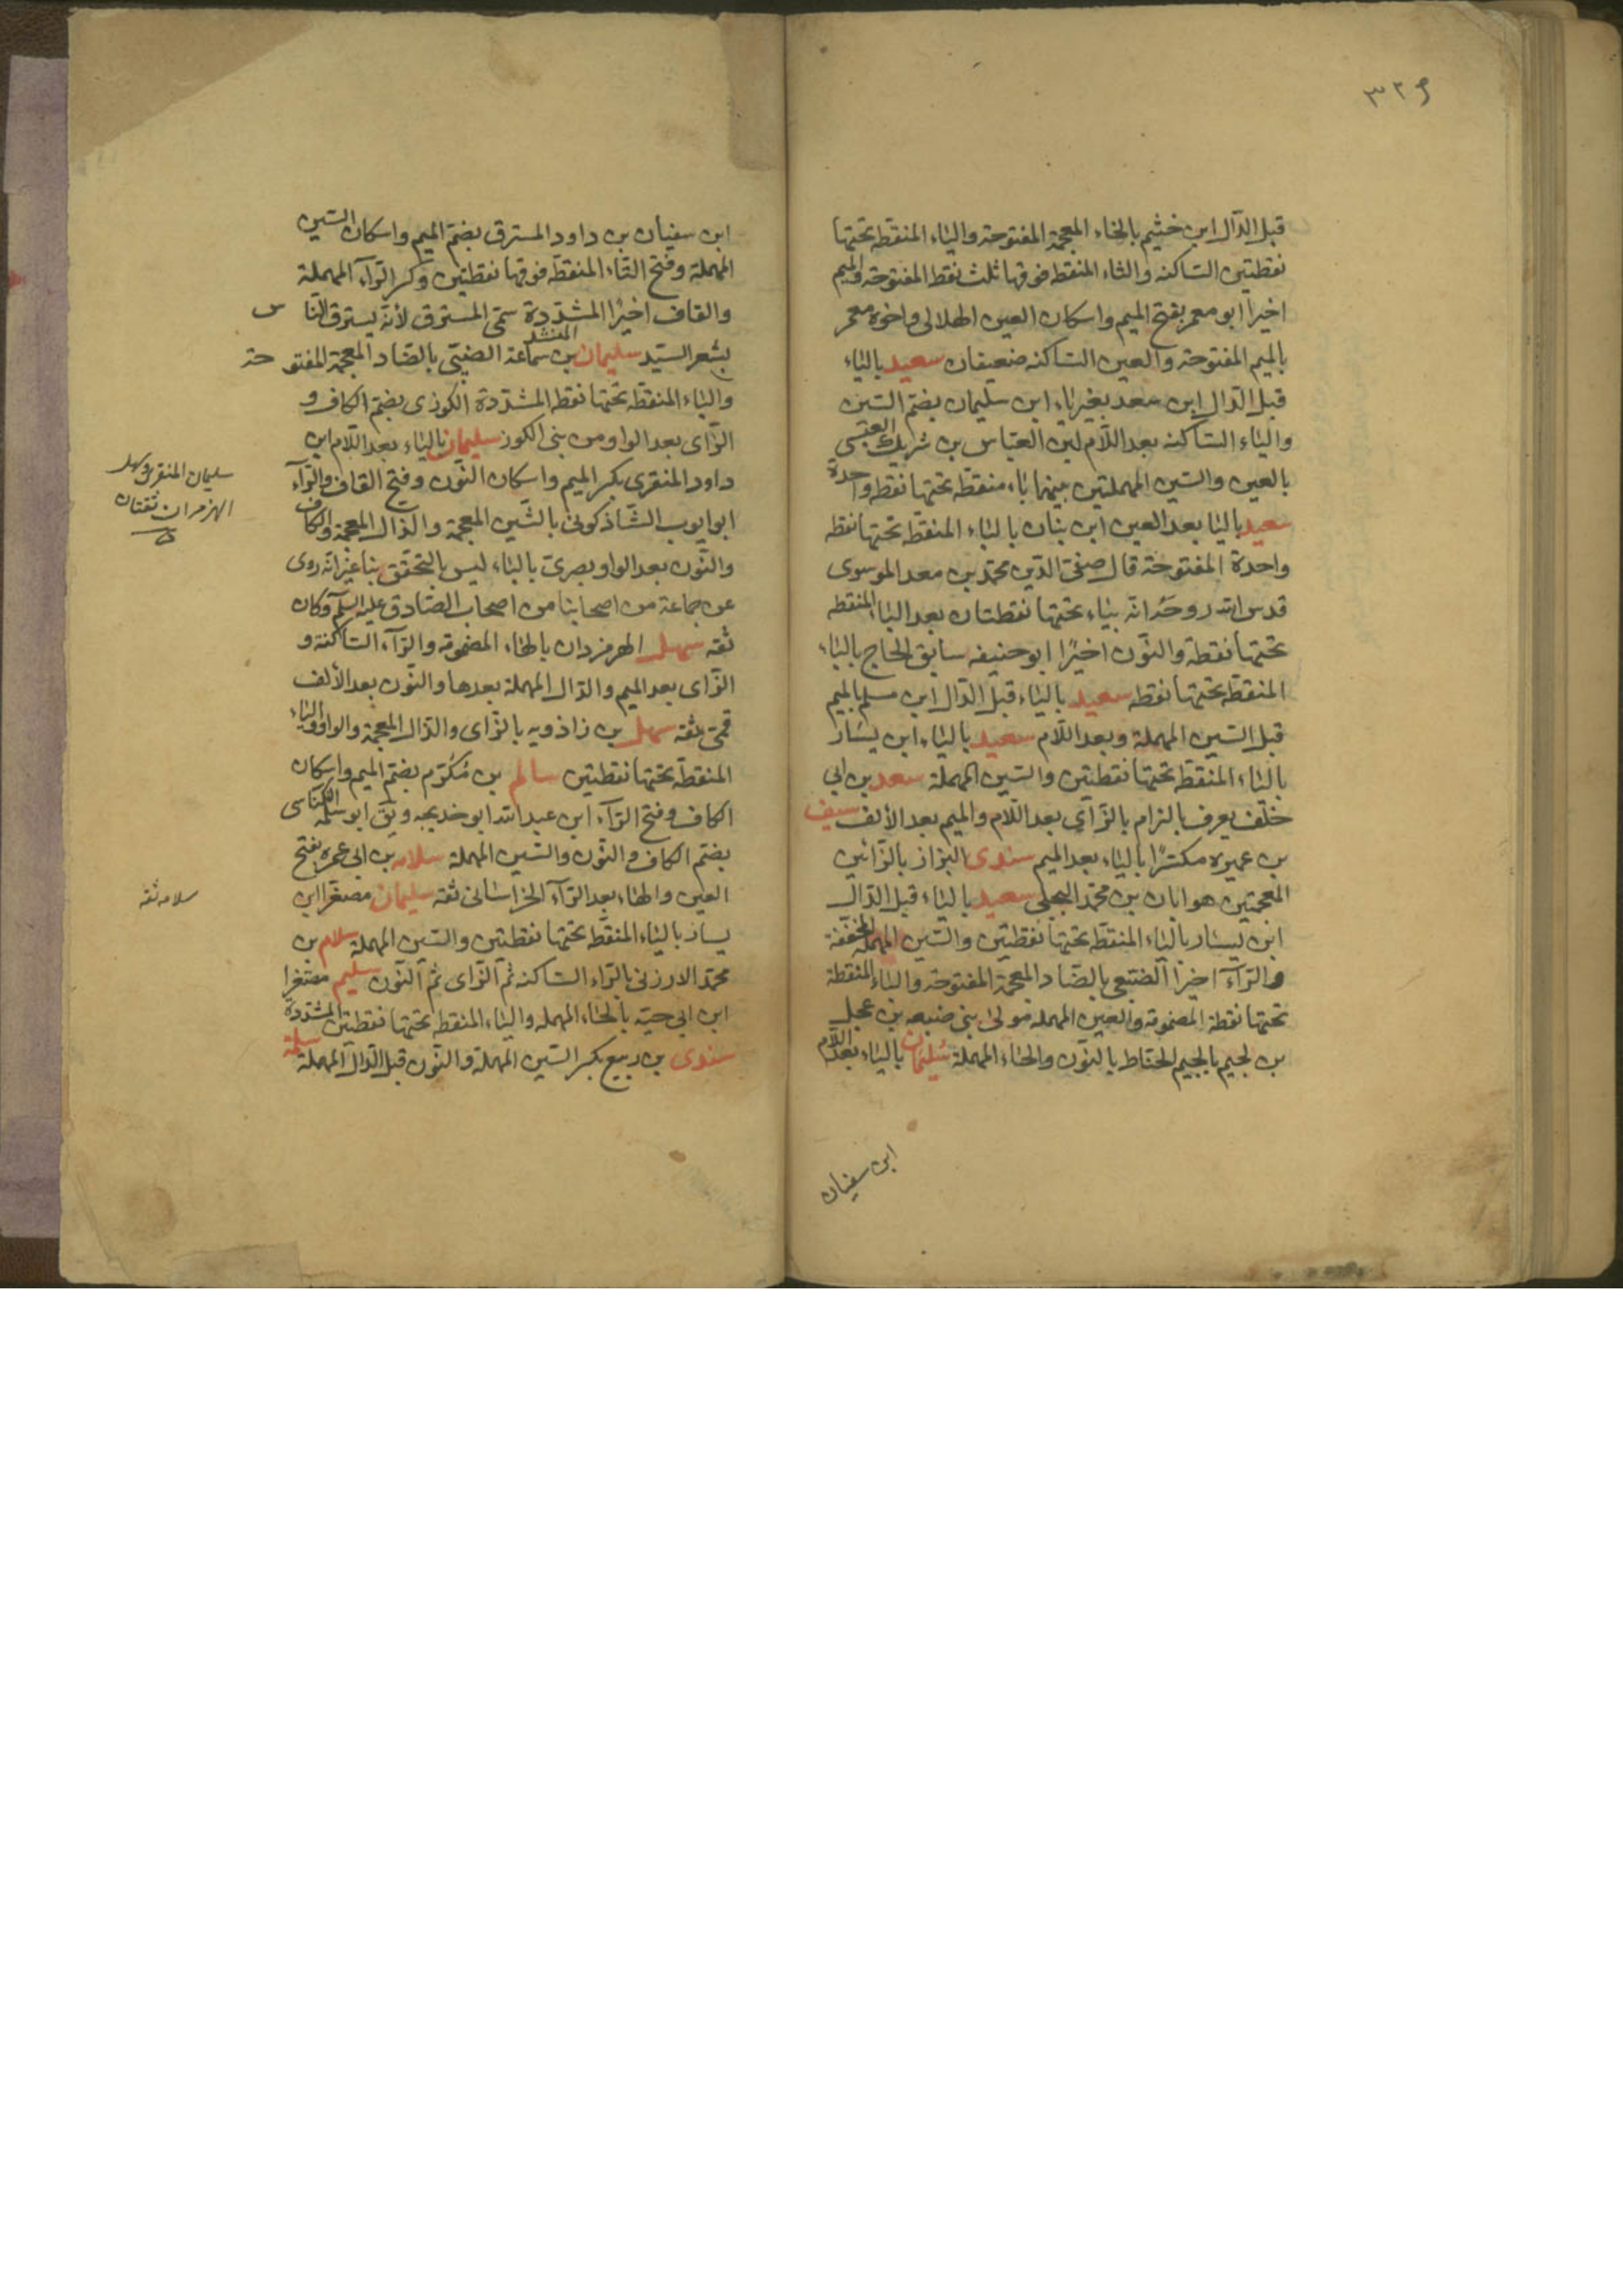 ٣٢٩
قبل الدال ابن خثيم بالخاء المعجمة المفتوحة والياء المنقطه تحتها
نقطتين الساكنه والثاء المنقطه فوقها ثلث نقط المفتوحة والميم
اخيرا ابو معمر بفتح الميم واسكان العين الهلالى واخوه معمر
بالميم المفتوحة والعين الساكنه ضعيفان سعيد بالياء
قبل الدال ابن سعد بغير ياء ابن سليمان بضم السين
والياء الساكنه بعد اللام ابن العباس بن شريك العبسى
بالعين والسين المهملتين بينهما باء منقطه تحتها نقطه واحدة
سعيد باليا بعد العين ابن بنان بالباء المنقطه تحتها نقطه
واحدة المفتوحة قال صفى الدين محمد بن معد الموسوى
قدس الله روحه انه بياء تحتها نقطتان بعد الباا المنقطه
تحتها نقطه والنون اخيرًا ابو حنيفه سابق الحاج بالباء
المنقطه تحتها نقطه سعيد بالياء قبل الدال ابن مسلم بالميم
قبل السين المهملة وبعد اللام سعيد بالياء ابن يسار
بالياء المنقطه تحتها نقطتين والسين المهملة سعد بن ابى
خلف يعرف بالزام بالزاى بعد اللام والميم بعد الألف سيف
بن عميره مكبرًا بالياء بعد الميم سندى البزاز بالزائين
المعجمتين هو ابان بن محمد البجلى سعيد بالياء قبل الدال
ابن يسار بالياء المنقطه تحتها نقطتين والسين المهملة المخففة
والراء اخيرا الضبعى بالضاد المعجمة المفتوحة والباء المنقطة
تحتها نقطة المضمومة والعين المهمله مولى بنى ضبعه بن عجل
بن لجيم بالجيم الحناط بالنون والحاء المهملة سليمان بالياء بعد اللام
ابن سفيان
ابن سفيان بن داود المسترق بضم الميم واسكان السين
المهملة وفتح التاء المنقطه فوقها نقطتين وكسر الراء المهملة
والقاف اخيرًا المشددة سمى المسترق لأنه يسترق الناس
بشعر السيد سليمان بن سماعة الضبى بالضاد المعجمة المفتوحة
والباء المنقطه تحتها نقطه المشددة الكوزى بضم الكاف و
الزاى بعد الواو من بنى الكوز سليمان بالياء بعد اللام ابن
داود المنقرى بكسر الميم واسكان النون وفتح القاف والراء
ابو ايوب الشاذكونى بالشين المعجمة والذال المعجمة والكاف
والنون بعد الواو بصرى بالباء ليس بالمتحقق بنا غير انه روى
عن جماعة من اصحابنا من اصحاب الصادق عليه السلم وكان
ثقه سهل الهرمزدان بالهاء المضمومة والراء الساكنة و
الزاى بعد الميم والدال المهملة بعدها والنون بعد الألف
قمى ثقه سهل بن زاذويه بالزاى والذال المعجمة والواو والياء
المنقطه تحتها نقطتين سالم بن مكرم بضم الميم واسكان
الكاف وفتح الراء ابن عبد الله ابو خديجه ويق ابو سلمه الكناسى
بضم الكاف والنون والسين المهملة سلامه بن ابى عمره بفتح
العين والهاء بعد الراء الخراسانى ثقه سليمان مصغرا ابن
يسار بالياء المنقطه تحتها نقطتين والسين المهملة سلام بن
محمد الارزنى بالراء الساكنه ثم الزاى ثم النون سليم مصغرا
ابن ابى حيه بالحاء المهمله والياء المنقطه تحتها نقطتين المشددة سلمة
سندى بن ربيع بكسر السين المهملة والنون قبل الدال المهملة
سليمان المنقرى وسهل
الهرمزان ثقتان
سلامه ثقه